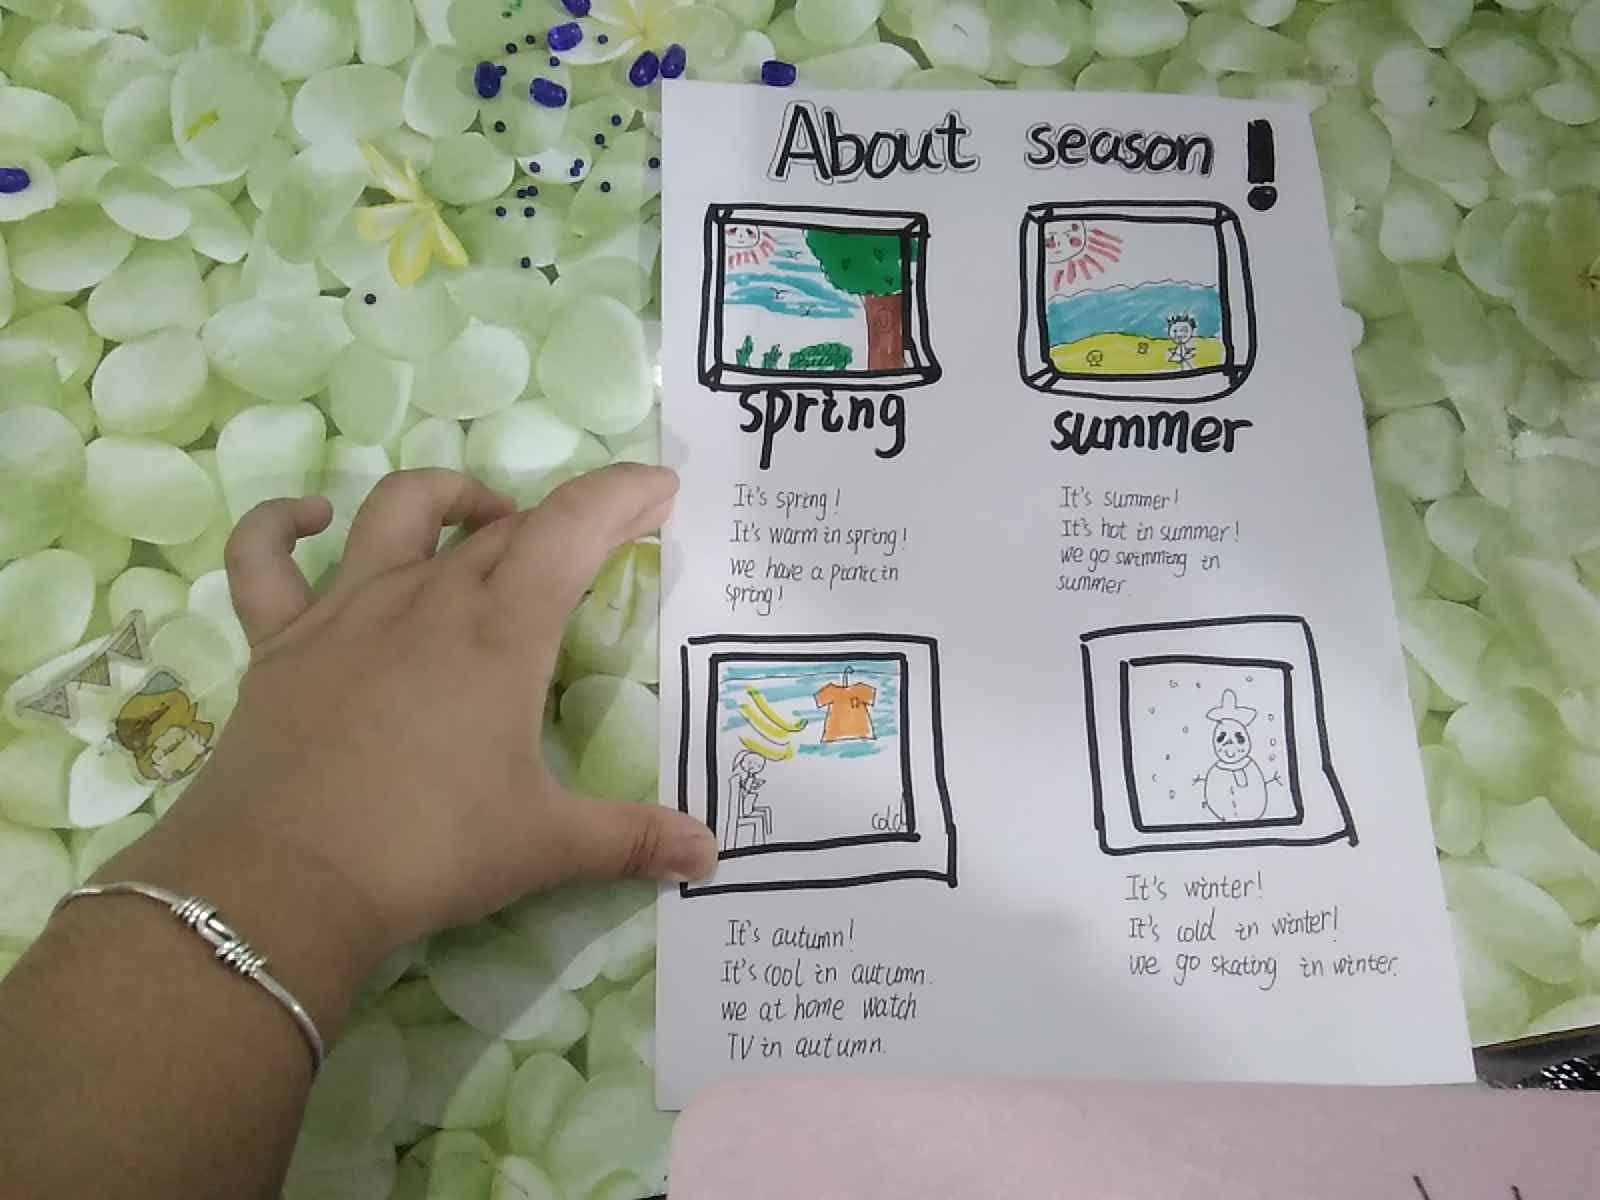 About season!
spring
It's spring!
It's warm in spring!
we have a picnic in
spring!
summer
It's summer!
It's hot in summer!
we go swimming in
summer.
cold
It's autumn!
It's cool in autumn.
we at home watch
TV in autumn.
It's winter!
It's cold in winter!
we go skating in winter.